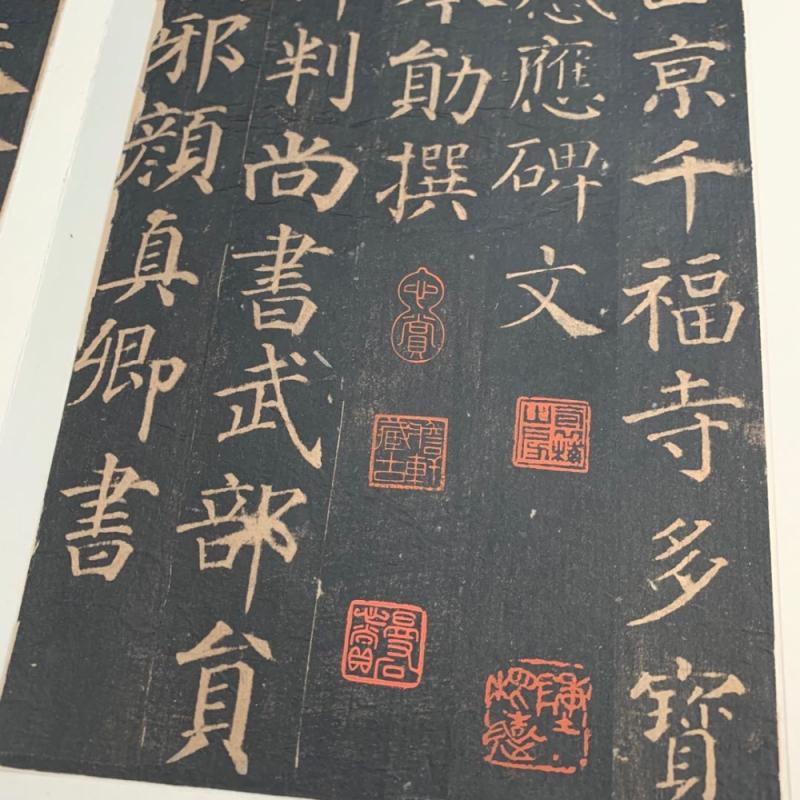 亰千福寺多寶
應碑文
勛撰
判尚書武部員
邪顔真卿書
心賞